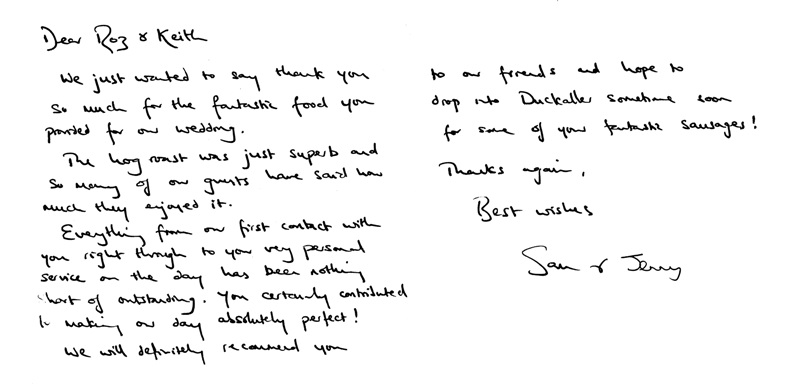 Dear Roz & Keith
We just wanted to say thank you
so much for the fantastic food you
provided for our wedding.
The hog roast was just superb and
so many of our guests have said how
much they enjoyed it.
Everything from our first contact with
you right through to your very personal
service on the day has been nothing
short of outstanding. You certainly contributed
to making our day absolutely perfect!
We will definitely recommend you
to our friends and hope to
drop into Duckaller sometime soon
for some of your fantastic sausages!
Thanks again,
Best wishes
Sam & Jerry